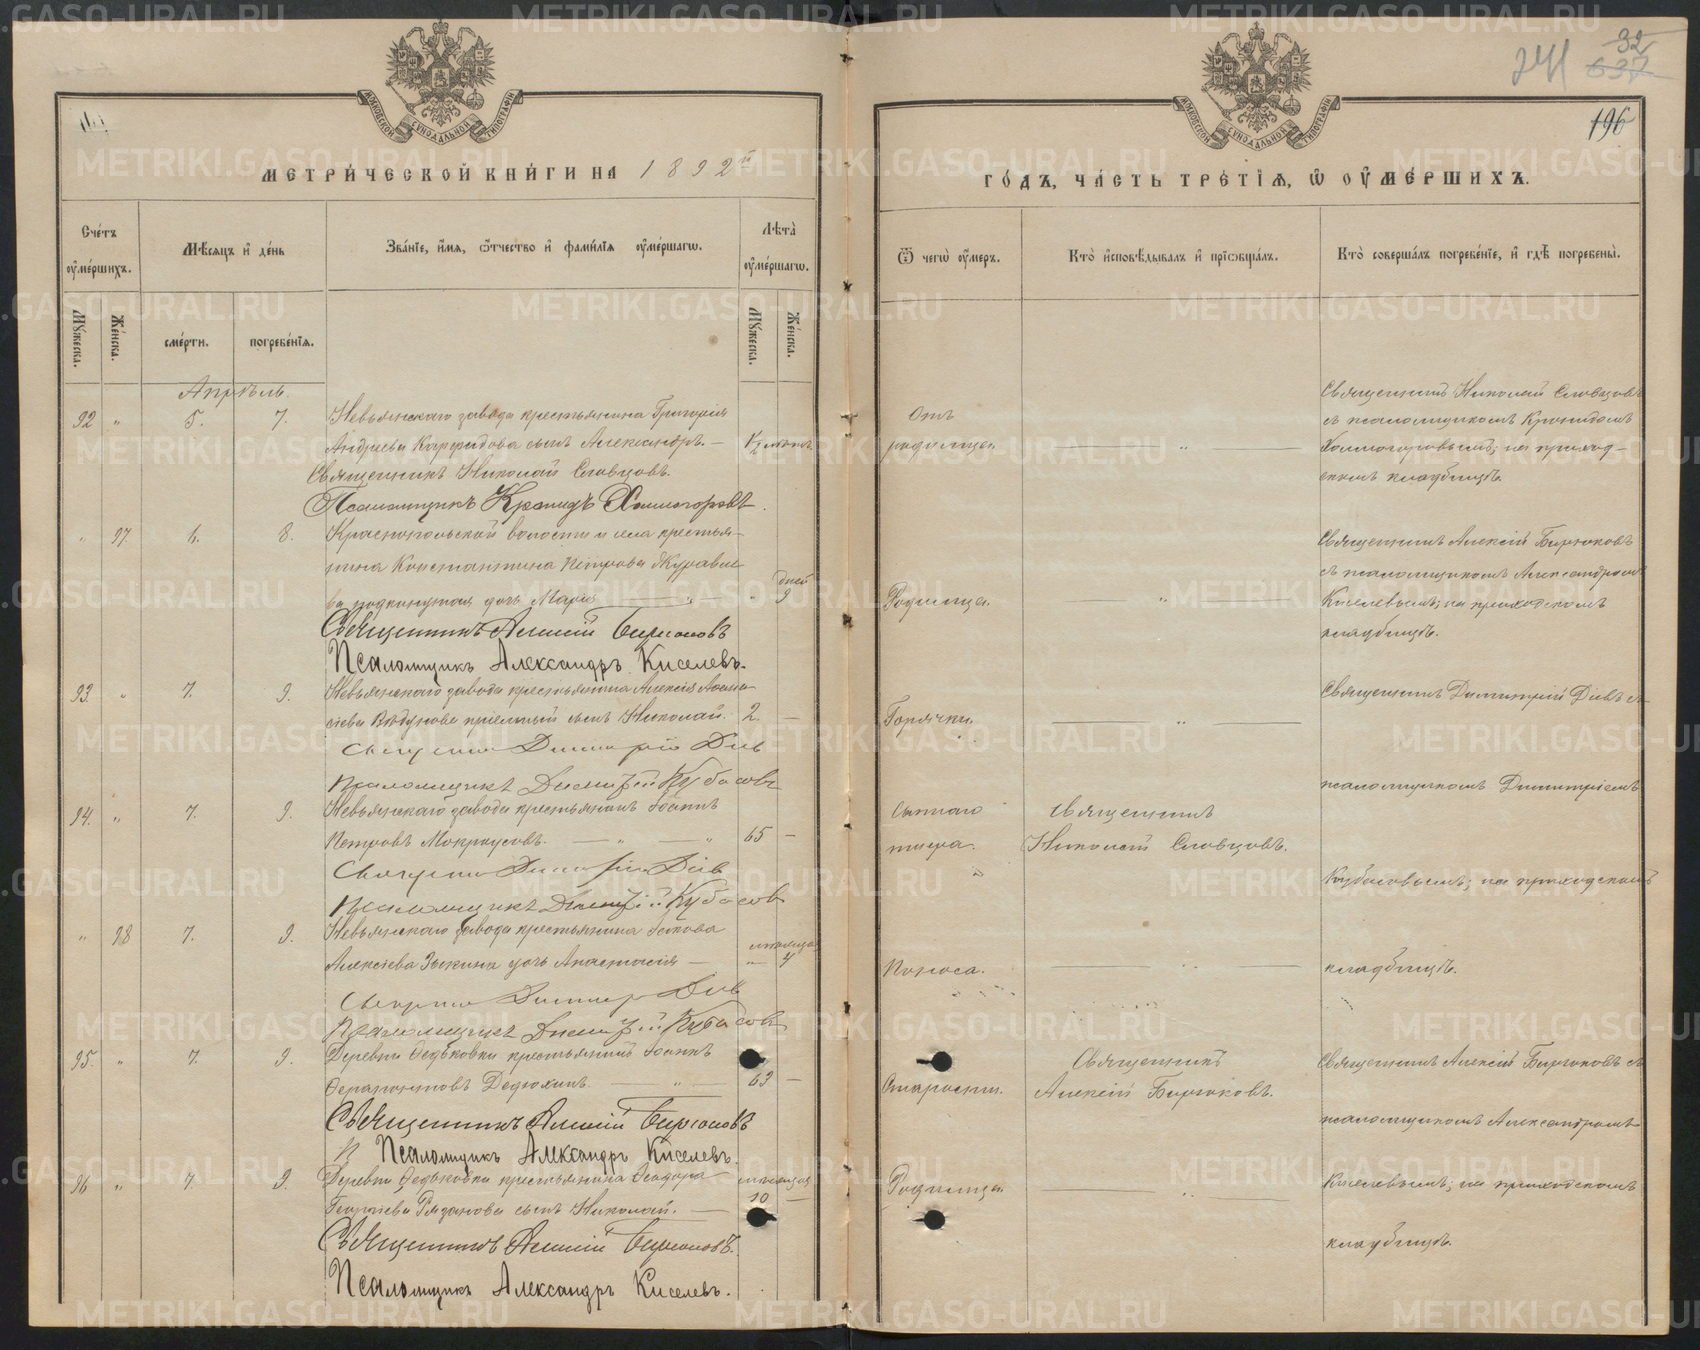 МЕТРИ́ЧЕСКОЙ КНИ́ГИ НА 1892й
Счетъ оумершихъ.
Мѣсяцъ и день
Званіе, имя, отчество и фамилія оумершагѡ.
Лѣта оумершагѡ.
Мужеска.
Женска.
смерти.
погребенія.
Мужеска.
Женска.
Апрѣль
92 " 5. 7. Невьянскаго завода крестьянина Григорія
Андреева сынъ Александръ. —
Священникъ Николай Словцовъ.
Псаломщикъ Кронидъ Холмогоровъ.
" 97. 6. 8. Краснопольской волости и села крестья-
нина Константина Петрова Журавле-
ва подкинутая дочь Марія — " — " дней 9
Священникъ Алексій Бирюковъ
Псаломщикъ Александръ Киселевъ.
93. " 7. 9. Невьянскаго завода крестьянина Алексія
пріемный сынъ Николай. 2. —
Священникъ Димитрій Діевъ
Псаломщикъ Димитрій Кубасовъ
94. " 7. 9. Невьянскаго завода крестьянинъ Іоаннъ
Петровъ Мокроусовъ. — " — " 65 —
Священникъ Димитрій Діевъ
Псаломщикъ Димитрій Кубасовъ
" 98 7. 9. Невьянскаго завода крестьянина Іакова
Алексіева Зыкина дочь Анастасія — " — 4
Священникъ Димитрій Діевъ
Псаломщикъ Димитрій Кубасовъ
95. " 7. 9. Деревни Ѳедьковки крестьянинъ Іоаннъ
Ѳерапонтовъ Дедюхинъ. — " — 63 —
Священникъ Алексій Бирюковъ
Псаломщикъ Александръ Киселевъ.
96 " 7. 9. Деревни Ѳедьковки крестьянина Ѳеодора
Георгіева Рязанова сынъ Николай. — 10 —
Священникъ Алексій Бирюковъ.
Псаломщикъ Александръ Киселевъ.
241 32
637
196
ГО́ДЪ, ЧА́СТЬ ТРЕ́ТІѦ, Ѡ҆ ОУ҆МЕ́РШИХЪ.
Ѿ чегѡ оумеръ.
Кто исповѣдывалъ и пріѡбщалъ.
Кто совершалъ погребеніе, и гдѣ погребены.
Отъ
родимца. — " —
Священникъ Николай Словцовъ
съ псаломщикомъ Кронидомъ
Холмогоровымъ; на приход-
скомъ кладбищѣ.
Родимца. " —
Священникъ Алексій Бирюковъ
съ псаломщикомъ Александромъ
Киселевымъ; на приходскомъ
кладбищѣ.
Горячки. — " —
Священникъ Димитрій Діевъ съ
псаломщикомъ Димитріемъ
Сыпнаго
тифа.
Священникъ
Николай Словцовъ.
Кубасовымъ; на приходскомъ
Поноса. — " —
кладбищѣ.
Старости.
Священникъ
Алексій Бирюковъ.
Священникъ Алексій Бирюковъ съ
псаломщикомъ Александромъ
Родимца. — " —
Киселевымъ; на приходскомъ
кладбищѣ.
METRIKI.GASO-URAL.RU